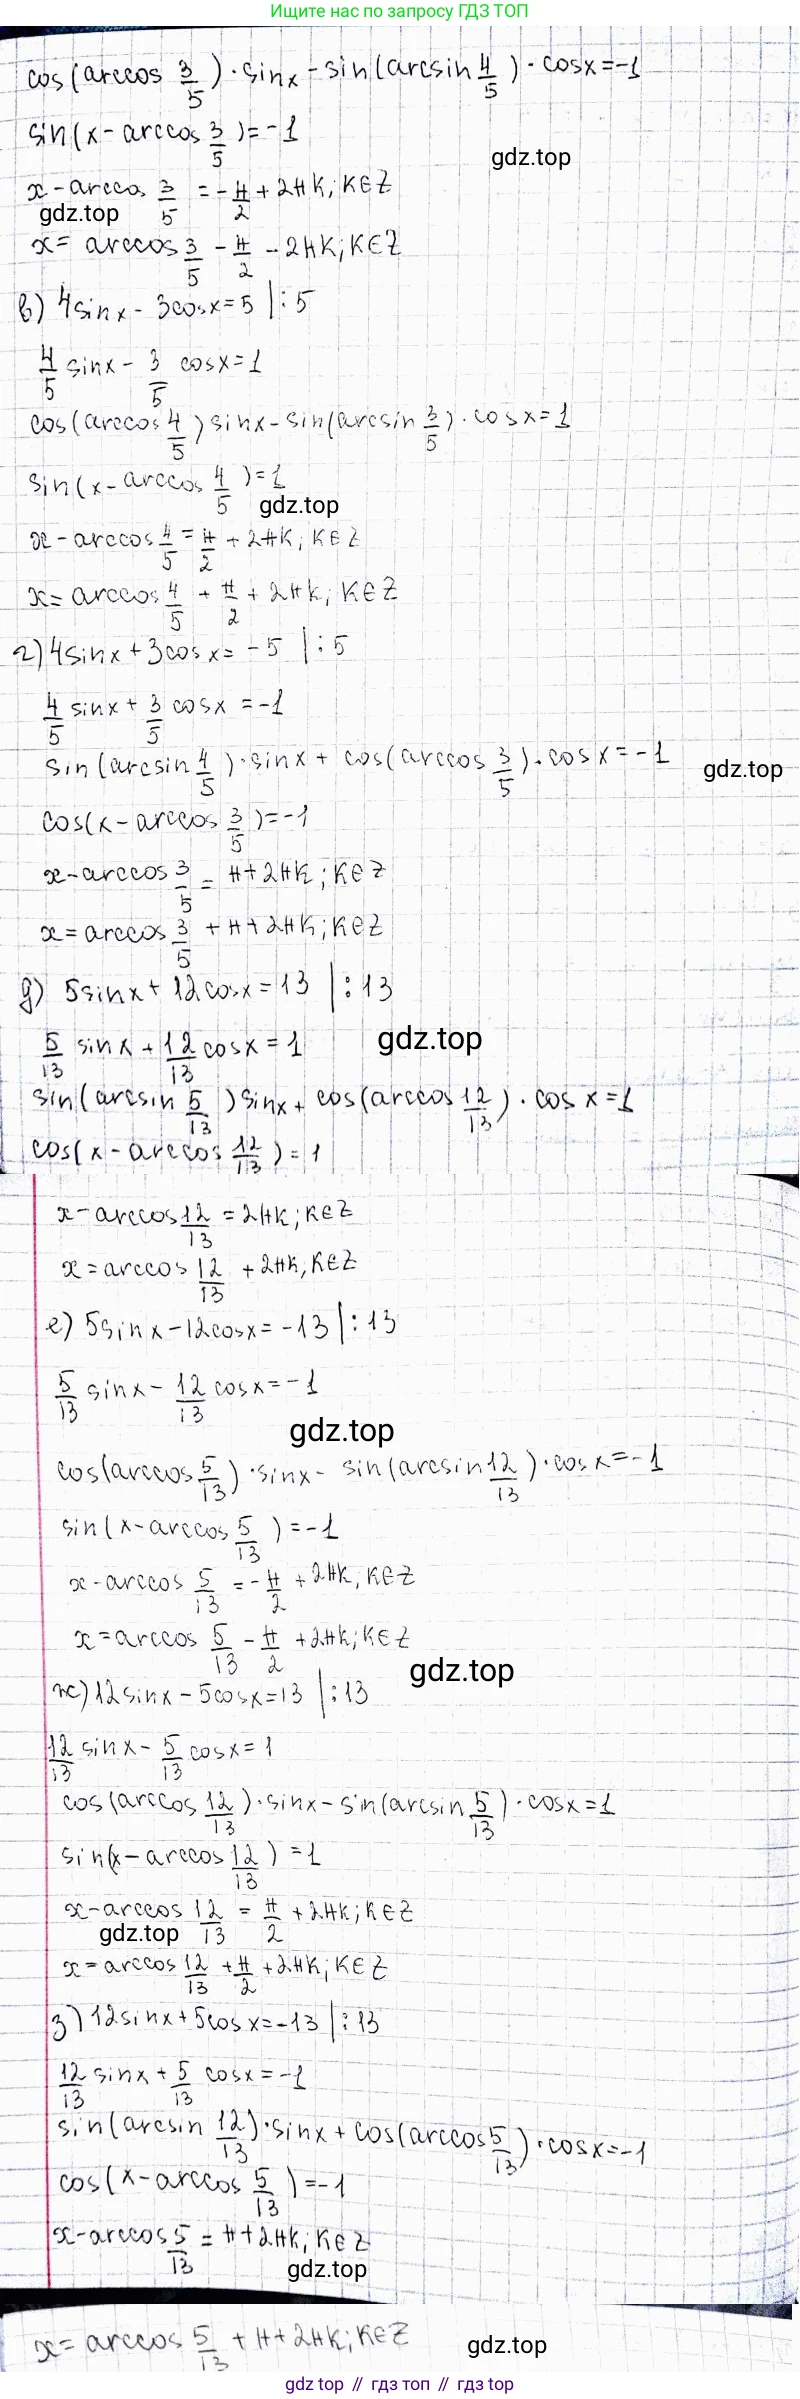 Ищите нас по запросу ГДЗ ТОП
cos(arccos 3/5)·sinx - sin(arcsin 4/5)·cosx=-1
sin(x-arccos 3/5)=-1
gdz.top
x-arccos 3/5 = -π/2 + 2πK; K∈Z
gdz.top
x= arccos 3/5 - π/2 - 2πK; K∈Z
в) 4sinx - 3cosx=5 |:5
4/5 sinx - 3/5 cosx=1
cos(arccos 4/5) sinx - sin(arcsin 3/5)·cosx=1
sin(x-arccos 4/5)=1
gdz.top
x-arccos 4/5 = π/2 + 2πK; K∈Z
x= arccos 4/5 + π/2 + 2πK; K∈Z
г) 4sinx+3cosx= -5 |:5
4/5 sinx + 3/5 cosx =-1
sin(arcsin 4/5)·sinx + cos(arccos 3/5)·cosx=-1
gdz.top
cos(x-arccos 3/5)=-1
x-arccos 3/5 = π+2πK; K∈Z
x=arccos 3/5 +π+2πK; K∈Z
д) 5sinx+12cosx=13 |:13
5/13 sinx + 12/13 cosx=1
gdz.top
sin(arcsin 5/13) sinx + cos(arccos 12/13)·cosx=1
cos(x-arccos 12/13)=1
x-arccos 12/13 = 2πK; K∈Z
x=arccos 12/13 + 2πK; K∈Z
е) 5sinx-12cosx=-13 |:13
5/13 sinx - 12/13 cosx=-1
gdz.top
cos(arccos 5/13)·sinx - sin(arcsin 12/13)·cosx=-1
sin(x-arccos 5/13)=-1
x-arccos 5/13 = -π/2 + 2πK; K∈Z
x=arccos 5/13 - π/2 + 2πK; K∈Z
gdz.top
ж) 12sinx-5cosx=13 |:13
12/13 sinx - 5/13 cosx=1
cos(arccos 12/13)·sinx - sin(arcsin 5/13)·cosx=1
sin(x-arccos 12/13)=1
x-arccos 12/13 = π/2 + 2πK; K∈Z
gdz.top
x=arccos 12/13 + π/2 + 2πK; K∈Z
з) 12sinx+5cosx=-13 |:13
12/13 sinx + 5/13 cosx=-1
sin(arcsin 12/13)·sinx + cos(arccos 5/13)·cosx=-1
cos(x-arccos 5/13)=-1
x-arccos 5/13 = π+2πK; K∈Z
gdz.top
x= arccos 5/13 + π+2πK; K∈Z
gdz.top
gdz.top // гдз топ // гдз.топ